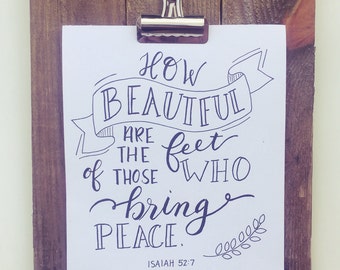 HOW
BEAUTIFUL
ARE
THE feet
of THOSE WHO
bring
PEACE.
ISAIAH 52:7